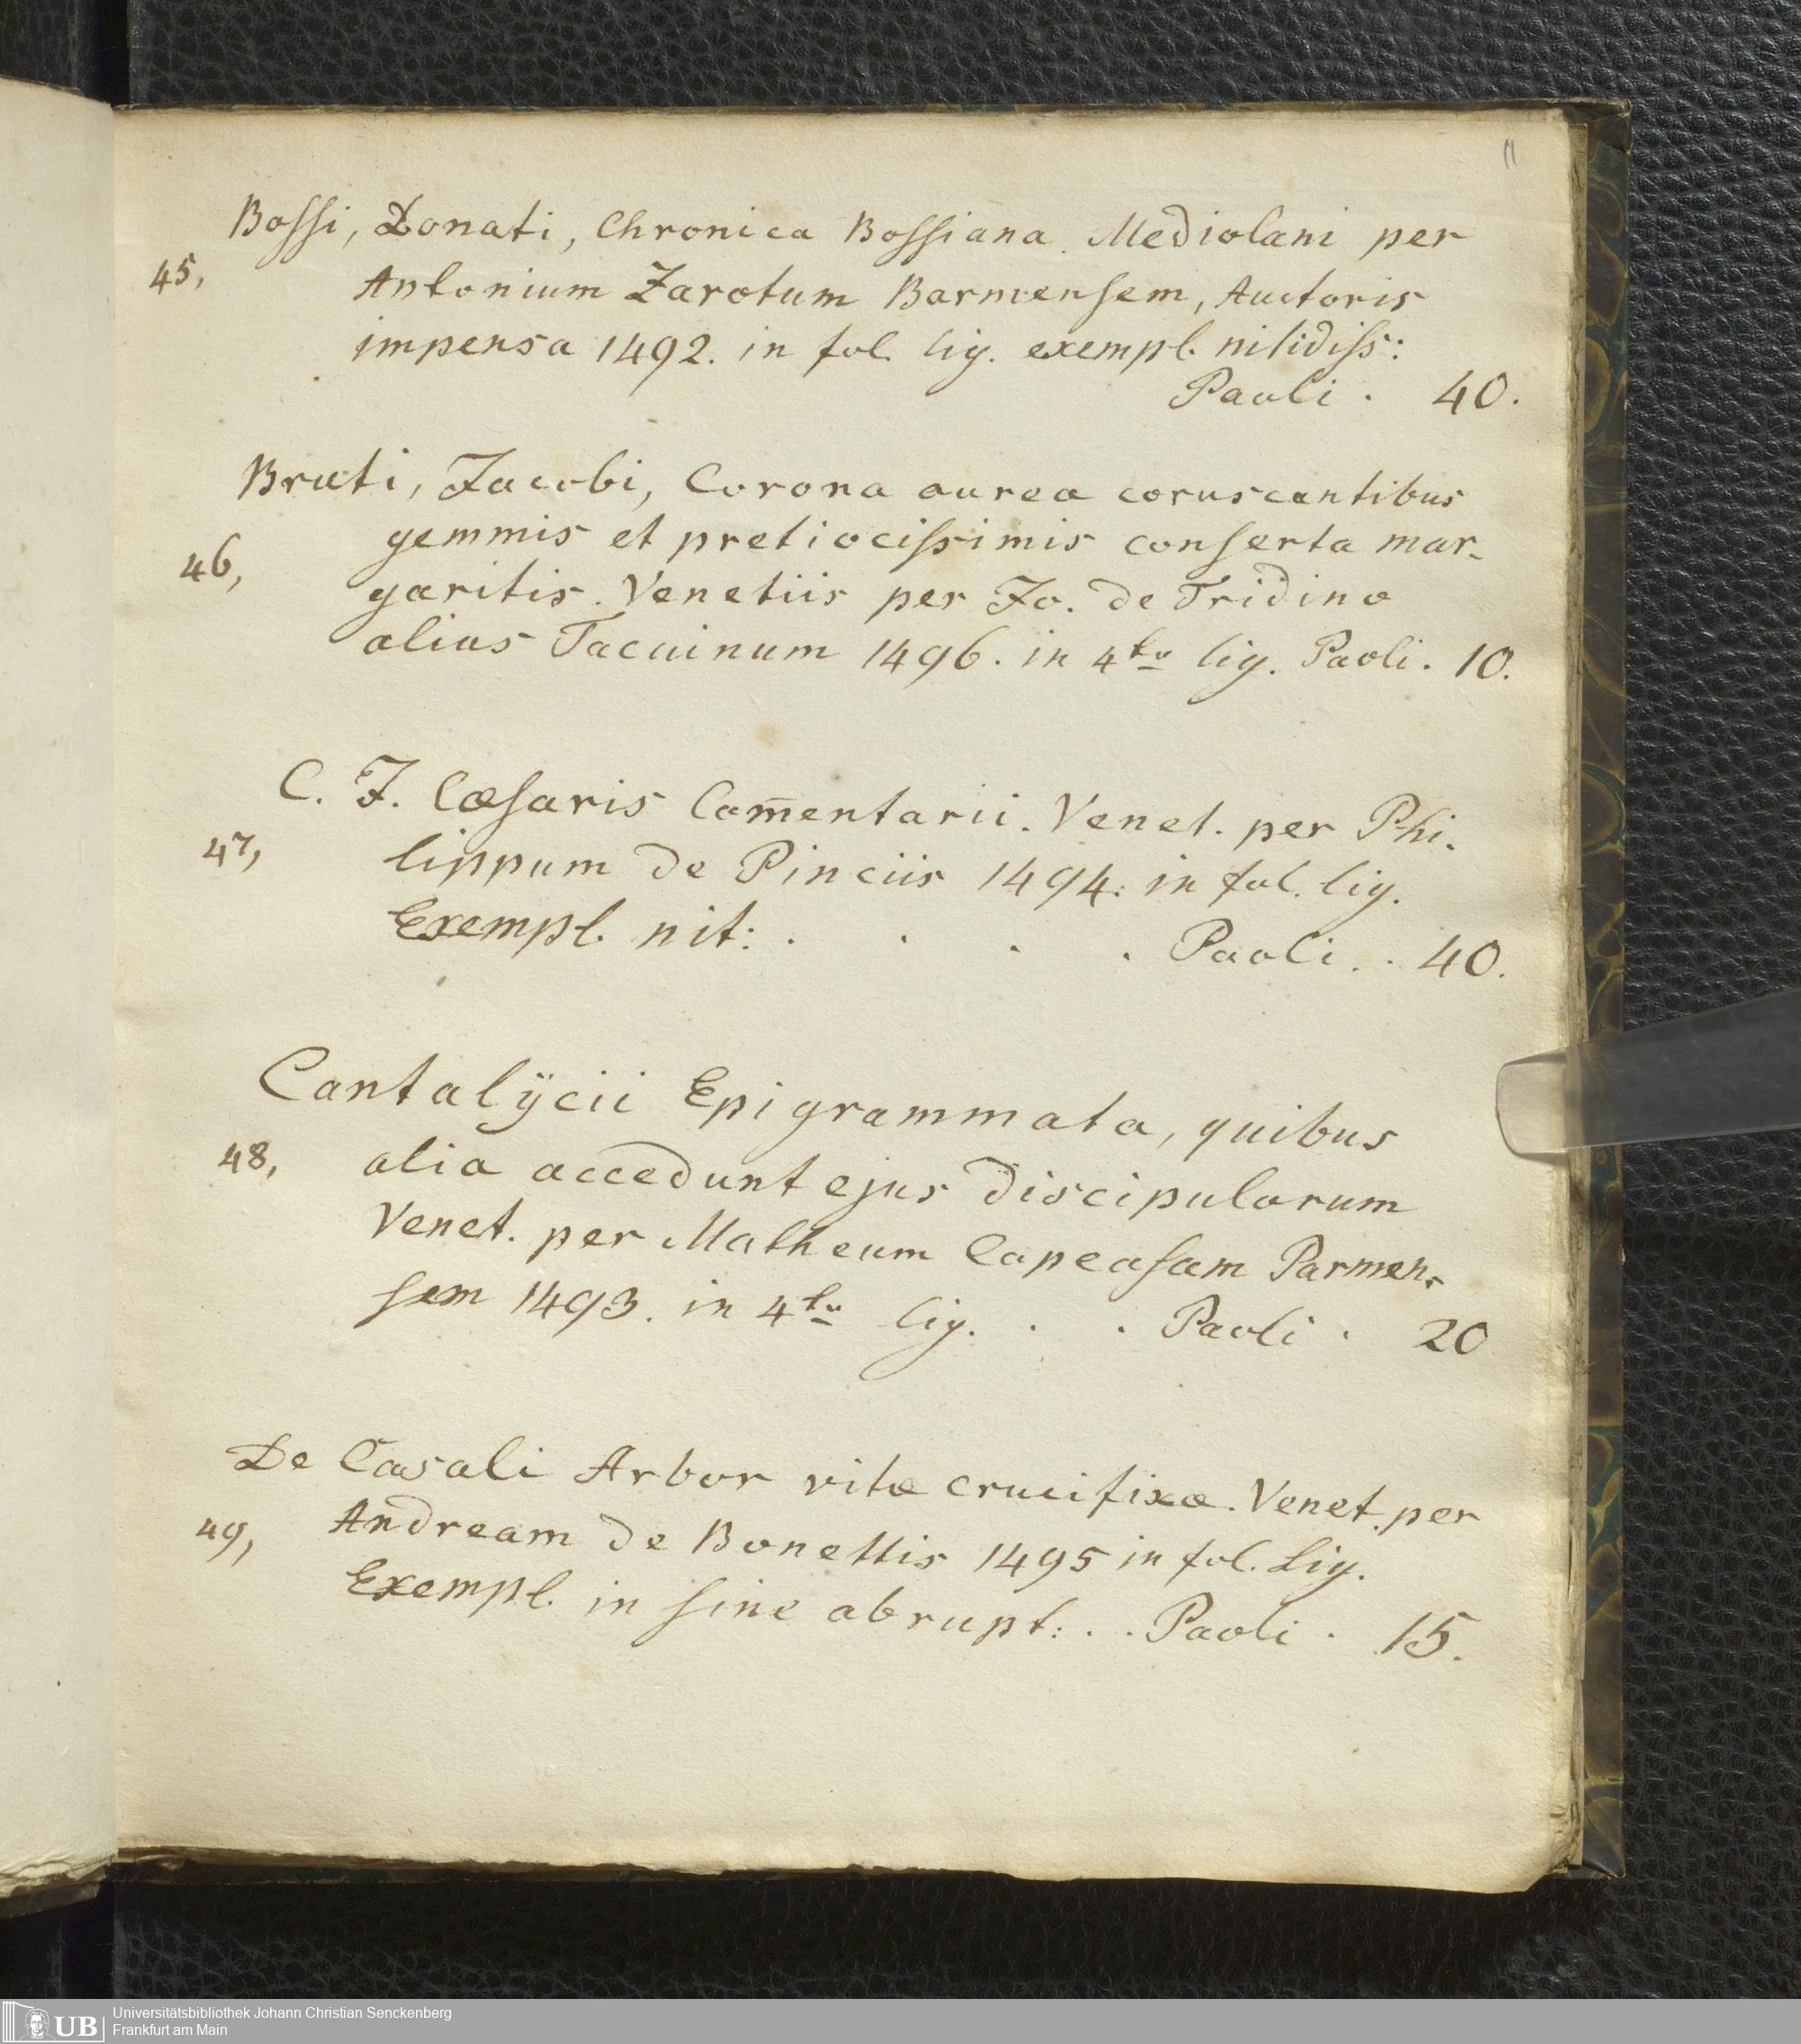 11
Boſſi, Donati, Chronica Boſſiana. Mediolani per
45, Antonium Zarotum Barmenſem, Auctoris
impensa 1492. in fol. lig. exempl. nitidiſs:
Paoli . 40.
Bruti, Jacobi, Corona aurea coruscantibus
gemmis et pretiociſsimis conſerta mar-
46, garitis. Venetiis per Jo. de Tridino
alius Tacuinum 1496. in 4to lig. Paoli. 10.
C. J. Cæſaris Com̄entarii. Venet. per Phi-
47, lippum de Pinciis 1494: in fol. lig.
Exempl. nit: . . . . Paoli . . 40.
Cantalÿcii Epigrammata, quibus
48, alia accedunt ejus discipulorum
Venet. per Matheum Capcaſam Parmen-
ſem 1493. in 4to lig. . . Paoli . 20
De Casali Arbor vitæ crucifixæ. Venet. per
49, Andream de Bonettis 1495 in fol. Lig.
Exempl. in fine abrupt: . . Paoli . 15.
UB
Universitätsbibliothek Johann Christian Senckenberg
Frankfurt am Main